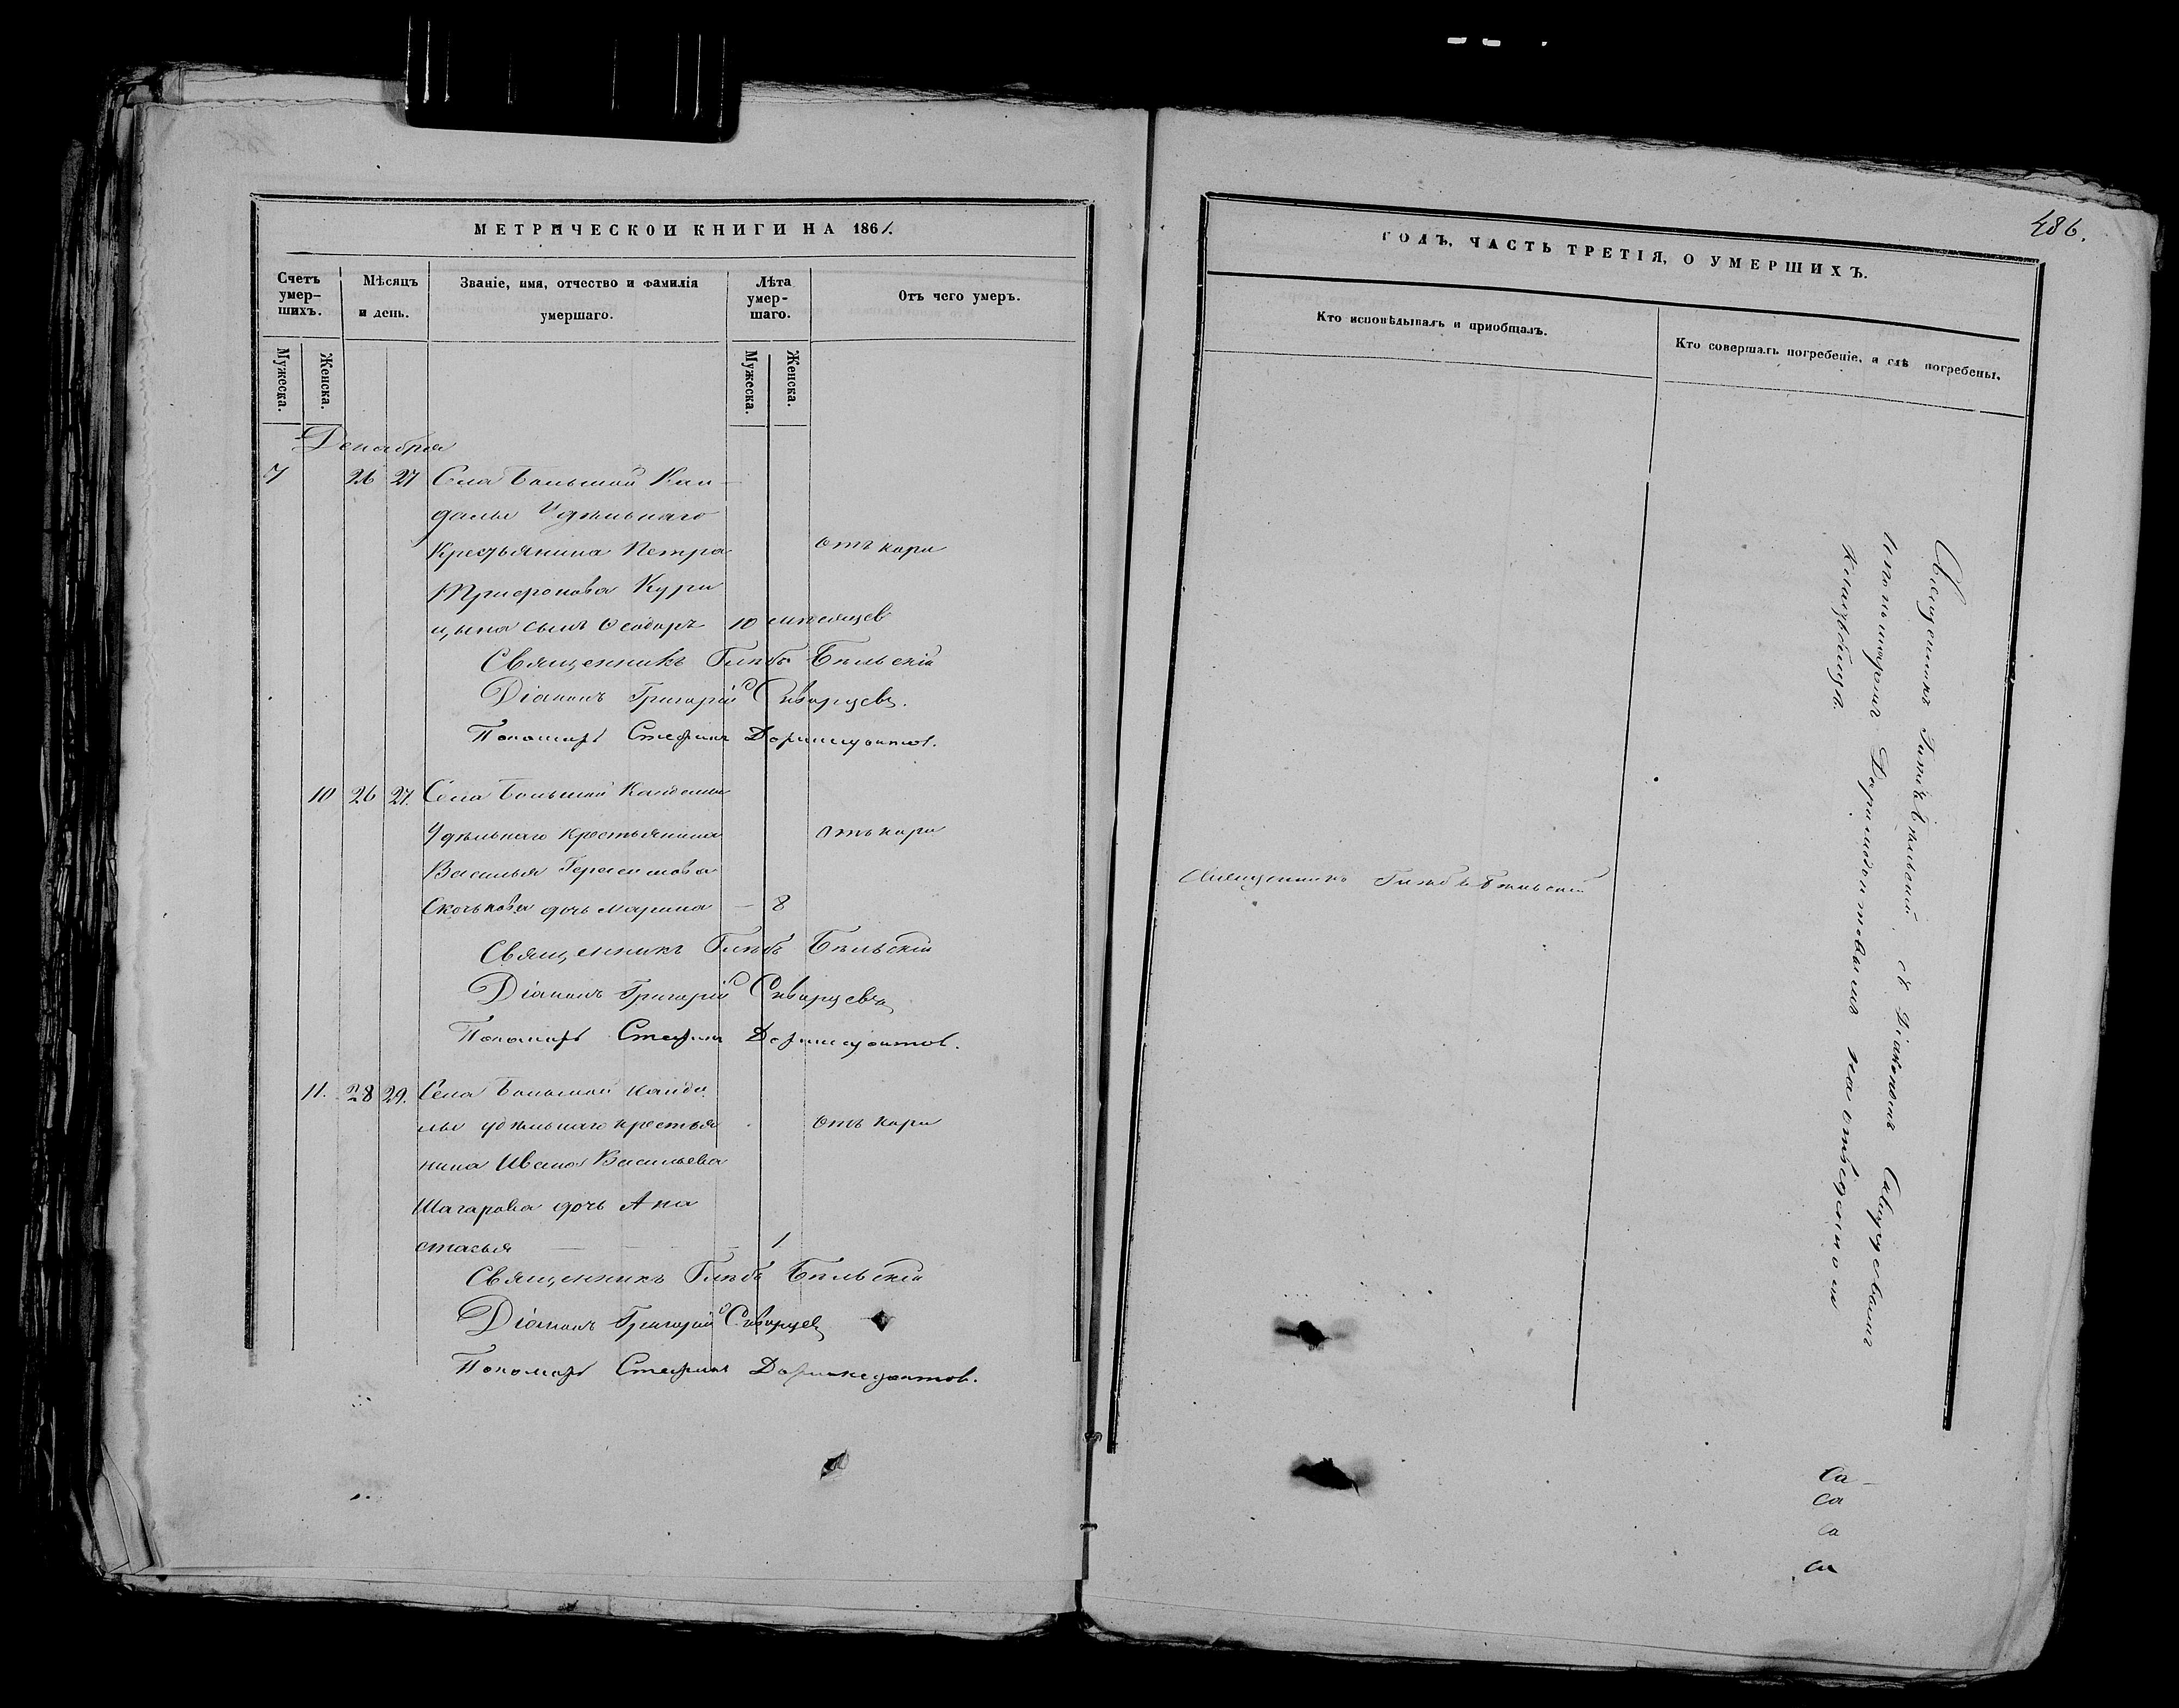 МЕТРИЧЕСКОЙ КНИГИ НА 1861.
Счетъ умер-
шихъ.
Мѣсяцъ
и день.
Званіе, имя, отчество и фамилія
умершаго.
Лѣта
умер-
шаго.
Отъ чего умеръ.
Мужеска.
Женска.
Мужеска.
Женска.
Декабря
7 26 27 Села Большой Кан-
далы Удѣльнаго
Крестьянина Петра отъ кори
Трифонова Кури
цына сынъ Ѳеодоръ 10 мѣсяцев
Священникъ Глѣбъ Бѣльскій
Діаконъ Григорій Скворцевъ.
Пономарь Стефанъ Доримедонтов.
10 26 27. Села Большой Кандалы
Удѣльнаго Крестьянина отъ кори
Василья Герасимова
дочь Марина — 8
Священникъ Глѣбъ Бѣльскій
Діаконъ Григорій Скворцевъ
Пономарь Стефанъ Доримедонтов.
11. 28 29. Села Большой Канда
лы удѣльнаго крестья отъ кори
нина Ивана Васильева
Шагарова дочь Ана
стасья — 1
Священникъ Глѣбъ Бѣльскій
Діаконъ Григорій Скворцевъ
Пономарь Стефанъ Доримедонтов.
486.
ГОДЪ, ЧАСТЬ ТРЕТІЯ, О УМЕРШИХЪ.
Кто исповѣдывалъ и пріобщалъ.
Кто совершалъ погребеніе, и гдѣ погребены.
Священникъ Глѣбъ Бѣльскій
Священникъ Глѣбъ Бѣльскій. съ Діакономъ Скворцевымъ
и пономаремъ Доримедонтовымъ на отведенном
кладбищѣ.
Са
Са
Са
Са